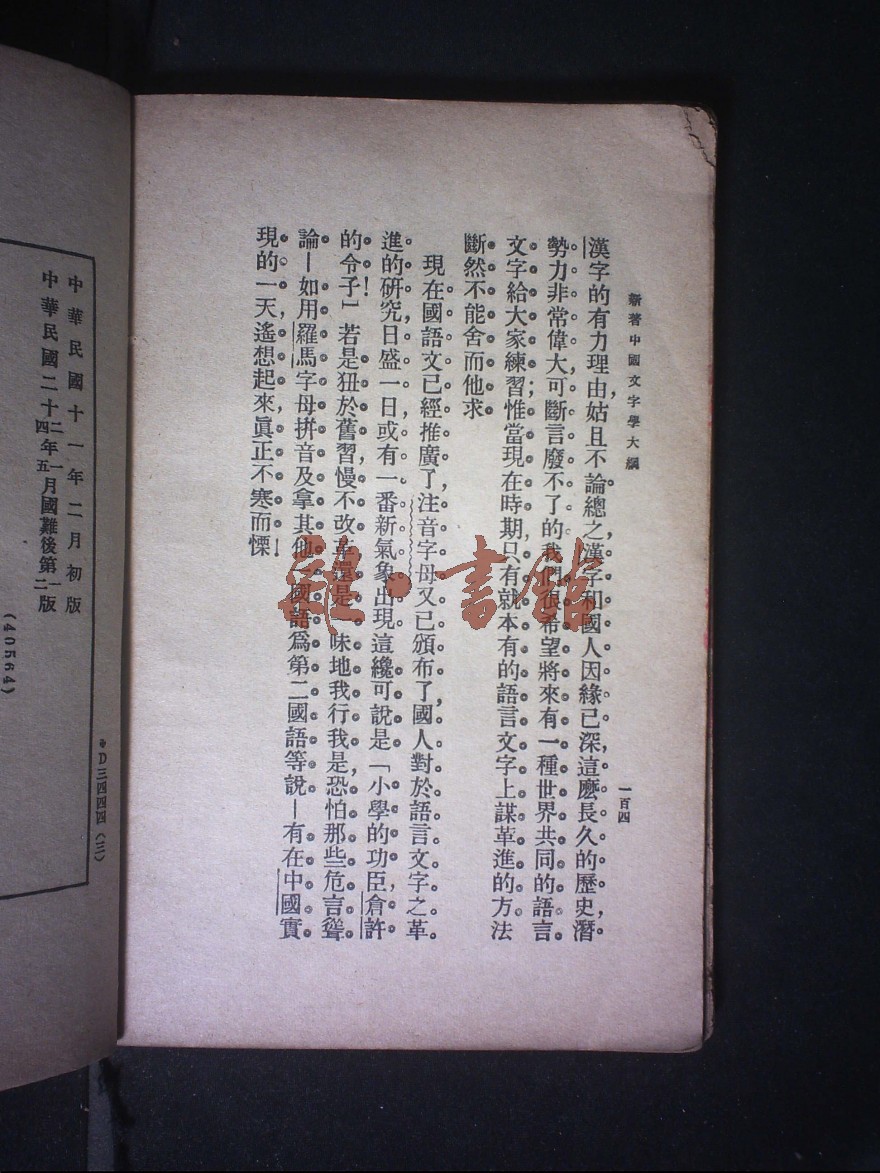 新著中國文字學大綱
一百四
漢字的有力理由,姑且不論總之,漢字和國人因緣已深,這麽長久的歷史,潛
勢力非常偉大,可斷言廢不了的我們很希望將來有一種世界共同的語言
文字給大家練習;惟當現在時期,只有就本有的語言文字上謀革進的方法
斷然不能舍而他求
現在國語文已經推廣了,注音字母又已頒布了,國人對於語言文字之革
進的研究,日盛一日,或有一番新氣象出現這纔可說是「小學的功臣,倉許
的令子!」若是狃於舊習,慢不改革還是一味地我行我是,恐怕那些危言聳
論—如用羅馬字母拼音及拿其他一國語爲第二國語等說—有在中國實
現的一天,遙想起來,眞正不寒而慄!
中華民國十一年二月初版
中華民國二十二年一月國難後第一版
四年五月 第二版
(40564)
D三四四四(三)
雜·書館